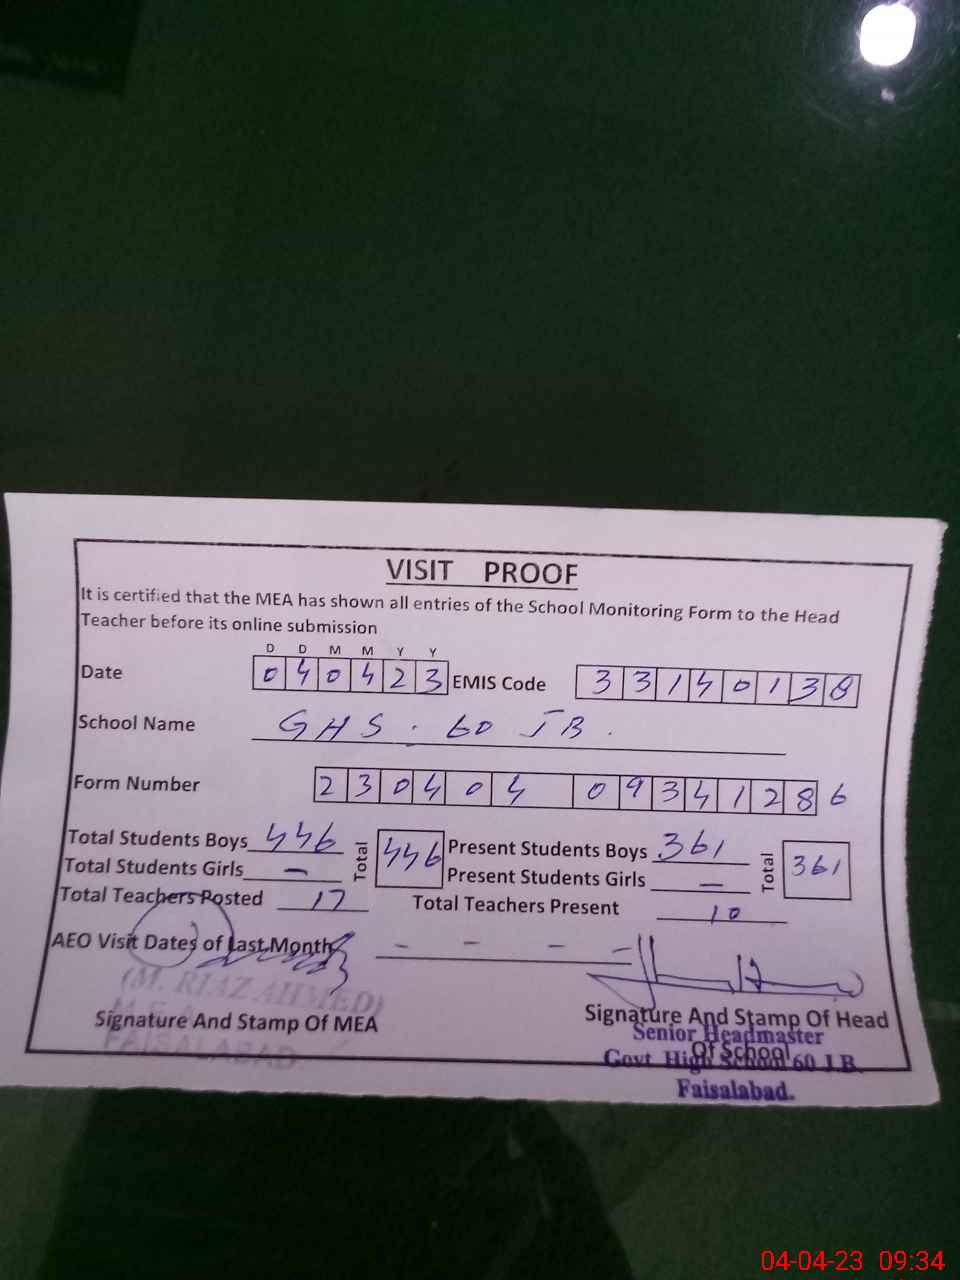 VISIT PROOF
It is certified that the MEA has shown all entries of the School Monitoring Form to the Head
Teacher before its online submission
D D M M Y Y
Date 0 4 0 4 2 3 EMIS Code 3 3 1 4 0 1 3 8
School Name GHS. 60 JB.
Form Number 2 3 0 4 0 4 0 9 3 4 1 2 8 6
Total Students Boys 446 Total 446 Present Students Boys 361 Total 361
Total Students Girls - Present Students Girls -
Total Teachers Posted 17 Total Teachers Present 10
AEO Visit Dates of Last Month - - - -
(M. RIAZ AHMED)
Signature And Stamp Of MEA
FAISALABAD.
Signature And Stamp Of Head
Of School
Senior Headmaster
Govt. High School 60 J.B.
Faisalabad.
04-04-23 09:34